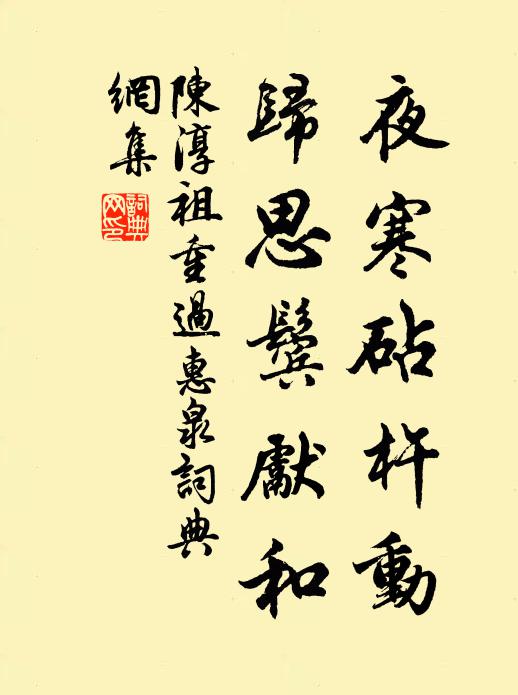 夜寒砧杵動
歸思鬢獻和
陳淳祖重過惠泉詞典
網集
詞典
网印